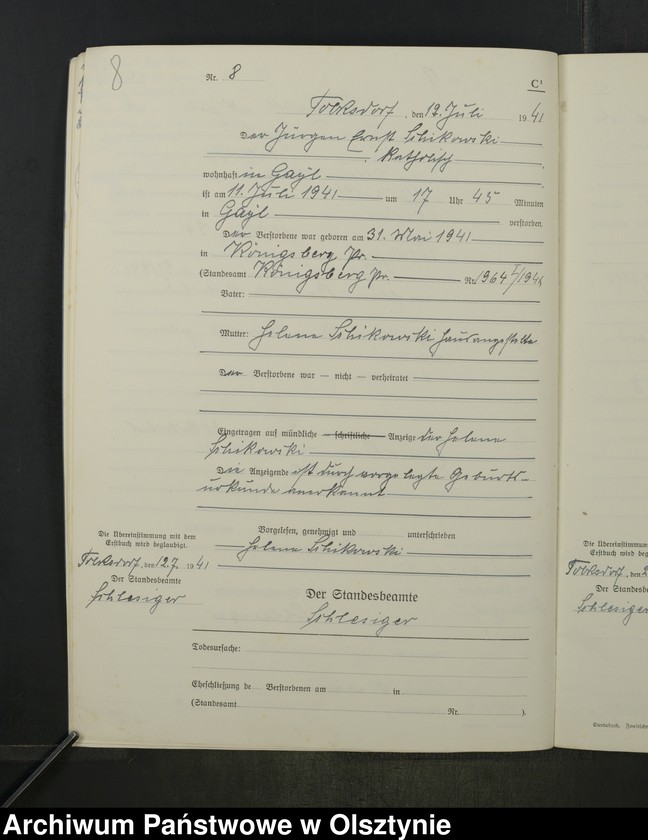 8
Nr. 8
C¹
Tolksdorf, den 12. Juli 1941
Der Jürgen Ernst Schikowski
katholisch
wohnhaft in Gayl
ist am 11. Juli 1941 um 17 Uhr 45 Minuten
in Gayl verstorben.
Der Verstorbene war geboren am 31. Mai 1941
in Königsberg Pr.
(Standesamt Königsberg Pr. Nr. 1964
Vater:
Mutter: Helene Schikowski Hausangestellte
Der Verstorbene war — nicht — verheiratet
Eingetragen auf mündliche — schriftliche — Anzeige der Helene
Schikowski
Die Anzeigende ist durch vorgelegte Geburts-
urkunde anerkannt
Vorgelesen, genehmigt und unterschrieben
Helene Schikowski
Die Übereinstimmung mit dem
Erstbuch wird beglaubigt.
Tolksdorf, den 12.7. 1941
Der Standesbeamte
Schlesiger
Der Standesbeamte
Schlesiger
Todesursache:
Eheschließung de Verstorbenen am in
(Standesamt Nr. ).
Die Übereinstimmun
Erstbuch wird beg
Tolksdorf, den 2
Der Standesb
Schlesiger
Archiwum Państwowe w Olsztynie